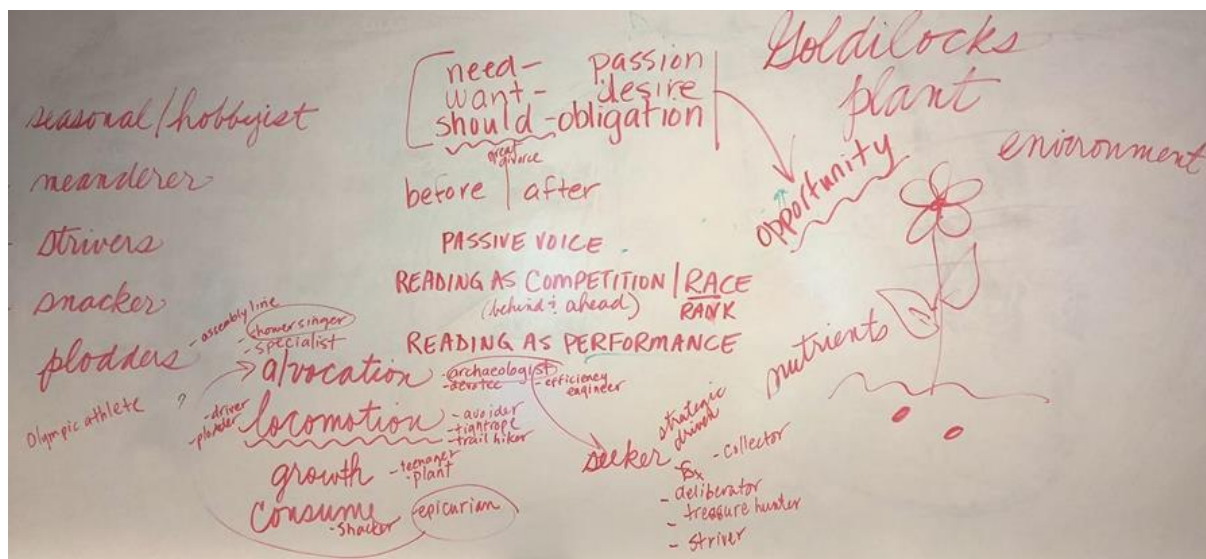 seasonal/hobbyist
meanderer
strivers
snacker
plodders
- assembly line
- showersinger
- specialist
Olympic athlete
?
need - passion
want - desire
should - obligation
great
divorce
before | after
PASSIVE VOICE
READING AS COMPETITION / RACE
(behind & ahead)
RANK
READING AS PERFORMANCE
a/vocation
- archaeologist
- efficiency
engineer
- driver
- plodder
locomotion
- avoider
- tightrope
- trail hiker
growth
- teenager
- plant
consume
- snacker
- epicurian
seeker
strategic
driven
- collector
- deliberator
- treasure hunter
- striver
Goldilocks
plant
environment
opportunity
nutrients